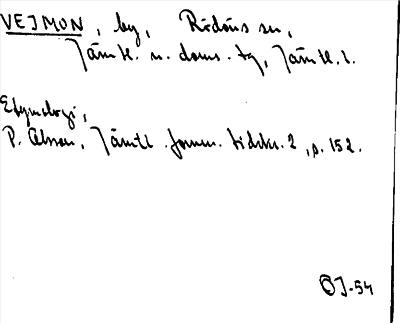 VEJMON, by, Rödöns sn,
Jämtl. n. doms. tg, Jämtl. l.
Etymologi,
P. Olsson, Jämtl. fornm. tidskr. 2, s. 152.
OJ-54